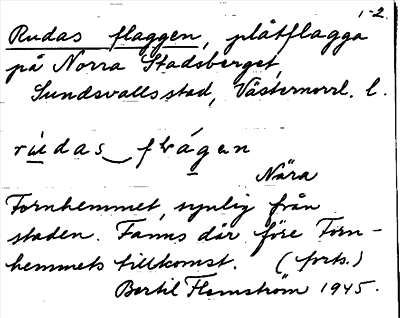 1-2.
Rudas flaggen, plåtflagga
på Norra Stadsberget,
Sundsvalls stad, Västernorrl. l.
rúdas flágen
Nära
Fornhemmet, synlig från
staden. Fanns där före Forn-
hemmets tillkomst. (forts.)
Bertil Flemström 1945.